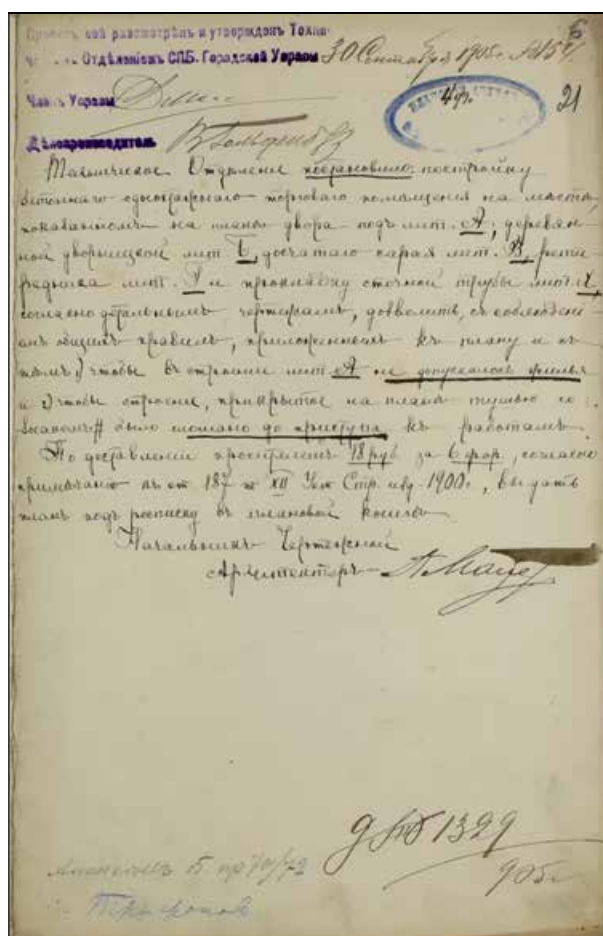 Проектъ сей разсмотрѣнъ и утвержденъ Техни-
Отдѣленіемъ СПБ. Городской Управы 30 Сентября 1905 г. №
6
Членъ Управы
4 ф.
21
Дѣлопроизводитель
Техническое Отдѣленіе постановило: постройку
бетоннаго одноэтажнаго торговаго помѣщенія на мѣстѣ,
показанномъ на планѣ двора подъ лит. А, деревян-
ной дворницкой лит. Б, досчатаго сарая лит. В, рети-
радника лит. Г и прокладку сточной трубы лит.
согласно детальнымъ чертежамъ, дозволить, съ соблюдені-
емъ общихъ правилъ, приложенныхъ къ плану и съ
тѣмъ: 1) чтобы въ строеніи лит. А не допускалось жилья
и 2) чтобы строеніе, прикрытое на планѣ тушью со
знакомъ # было сломано до приступа къ работамъ.
По доставленіи просителемъ 18 руб. за 6 фор., согласно
примѣчанію къ ст. 187 т. XII Уст. Стр. изд. 1900 г., выдать
планъ подъ росписку въ плановой книгѣ.
Начальникъ Чертежной
Архитекторъ
1329
905 г.